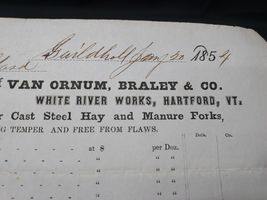 Guildhall Jany 20 1854
VAN ORNUM, BRALEY & CO.
WHITE RIVER WORKS, HARTFORD, VT.
Cast Steel Hay and Manure Forks,
NG TEMPER AND FREE FROM FLAWS.
Dolls. Cts.
at $ per Doz.
" " "
" " "
" "